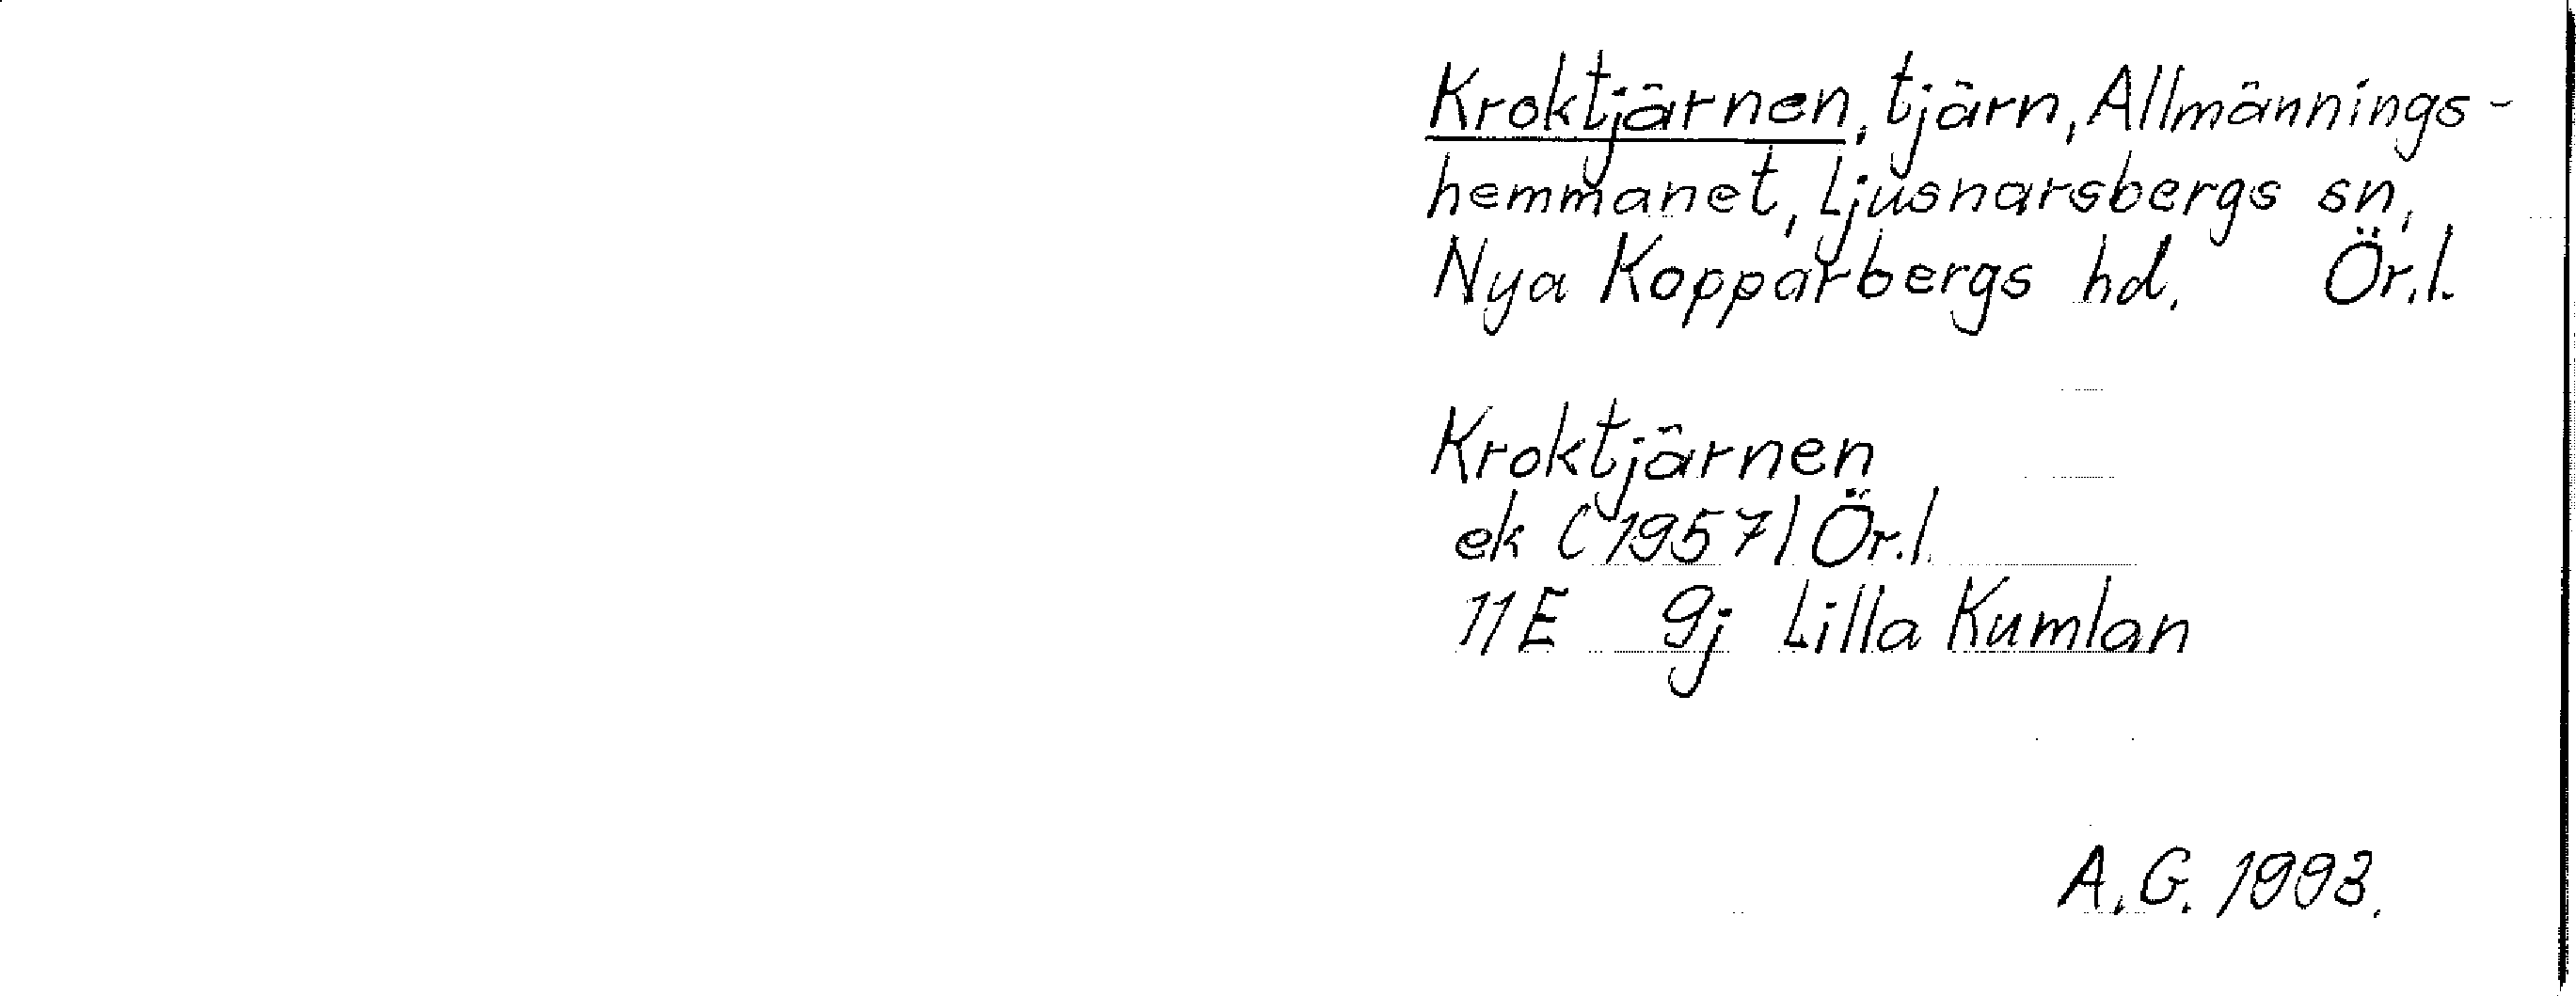 Kroktjärnen, tjärn, Allmännings-
hemmanet, Ljusnarsbergs sn,
Nya Kopparbergs hd. Ör.l.
Kroktjärnen
ek (1957) Ör.l.
11E 9j Lilla Kumlan
A.G. 1993.